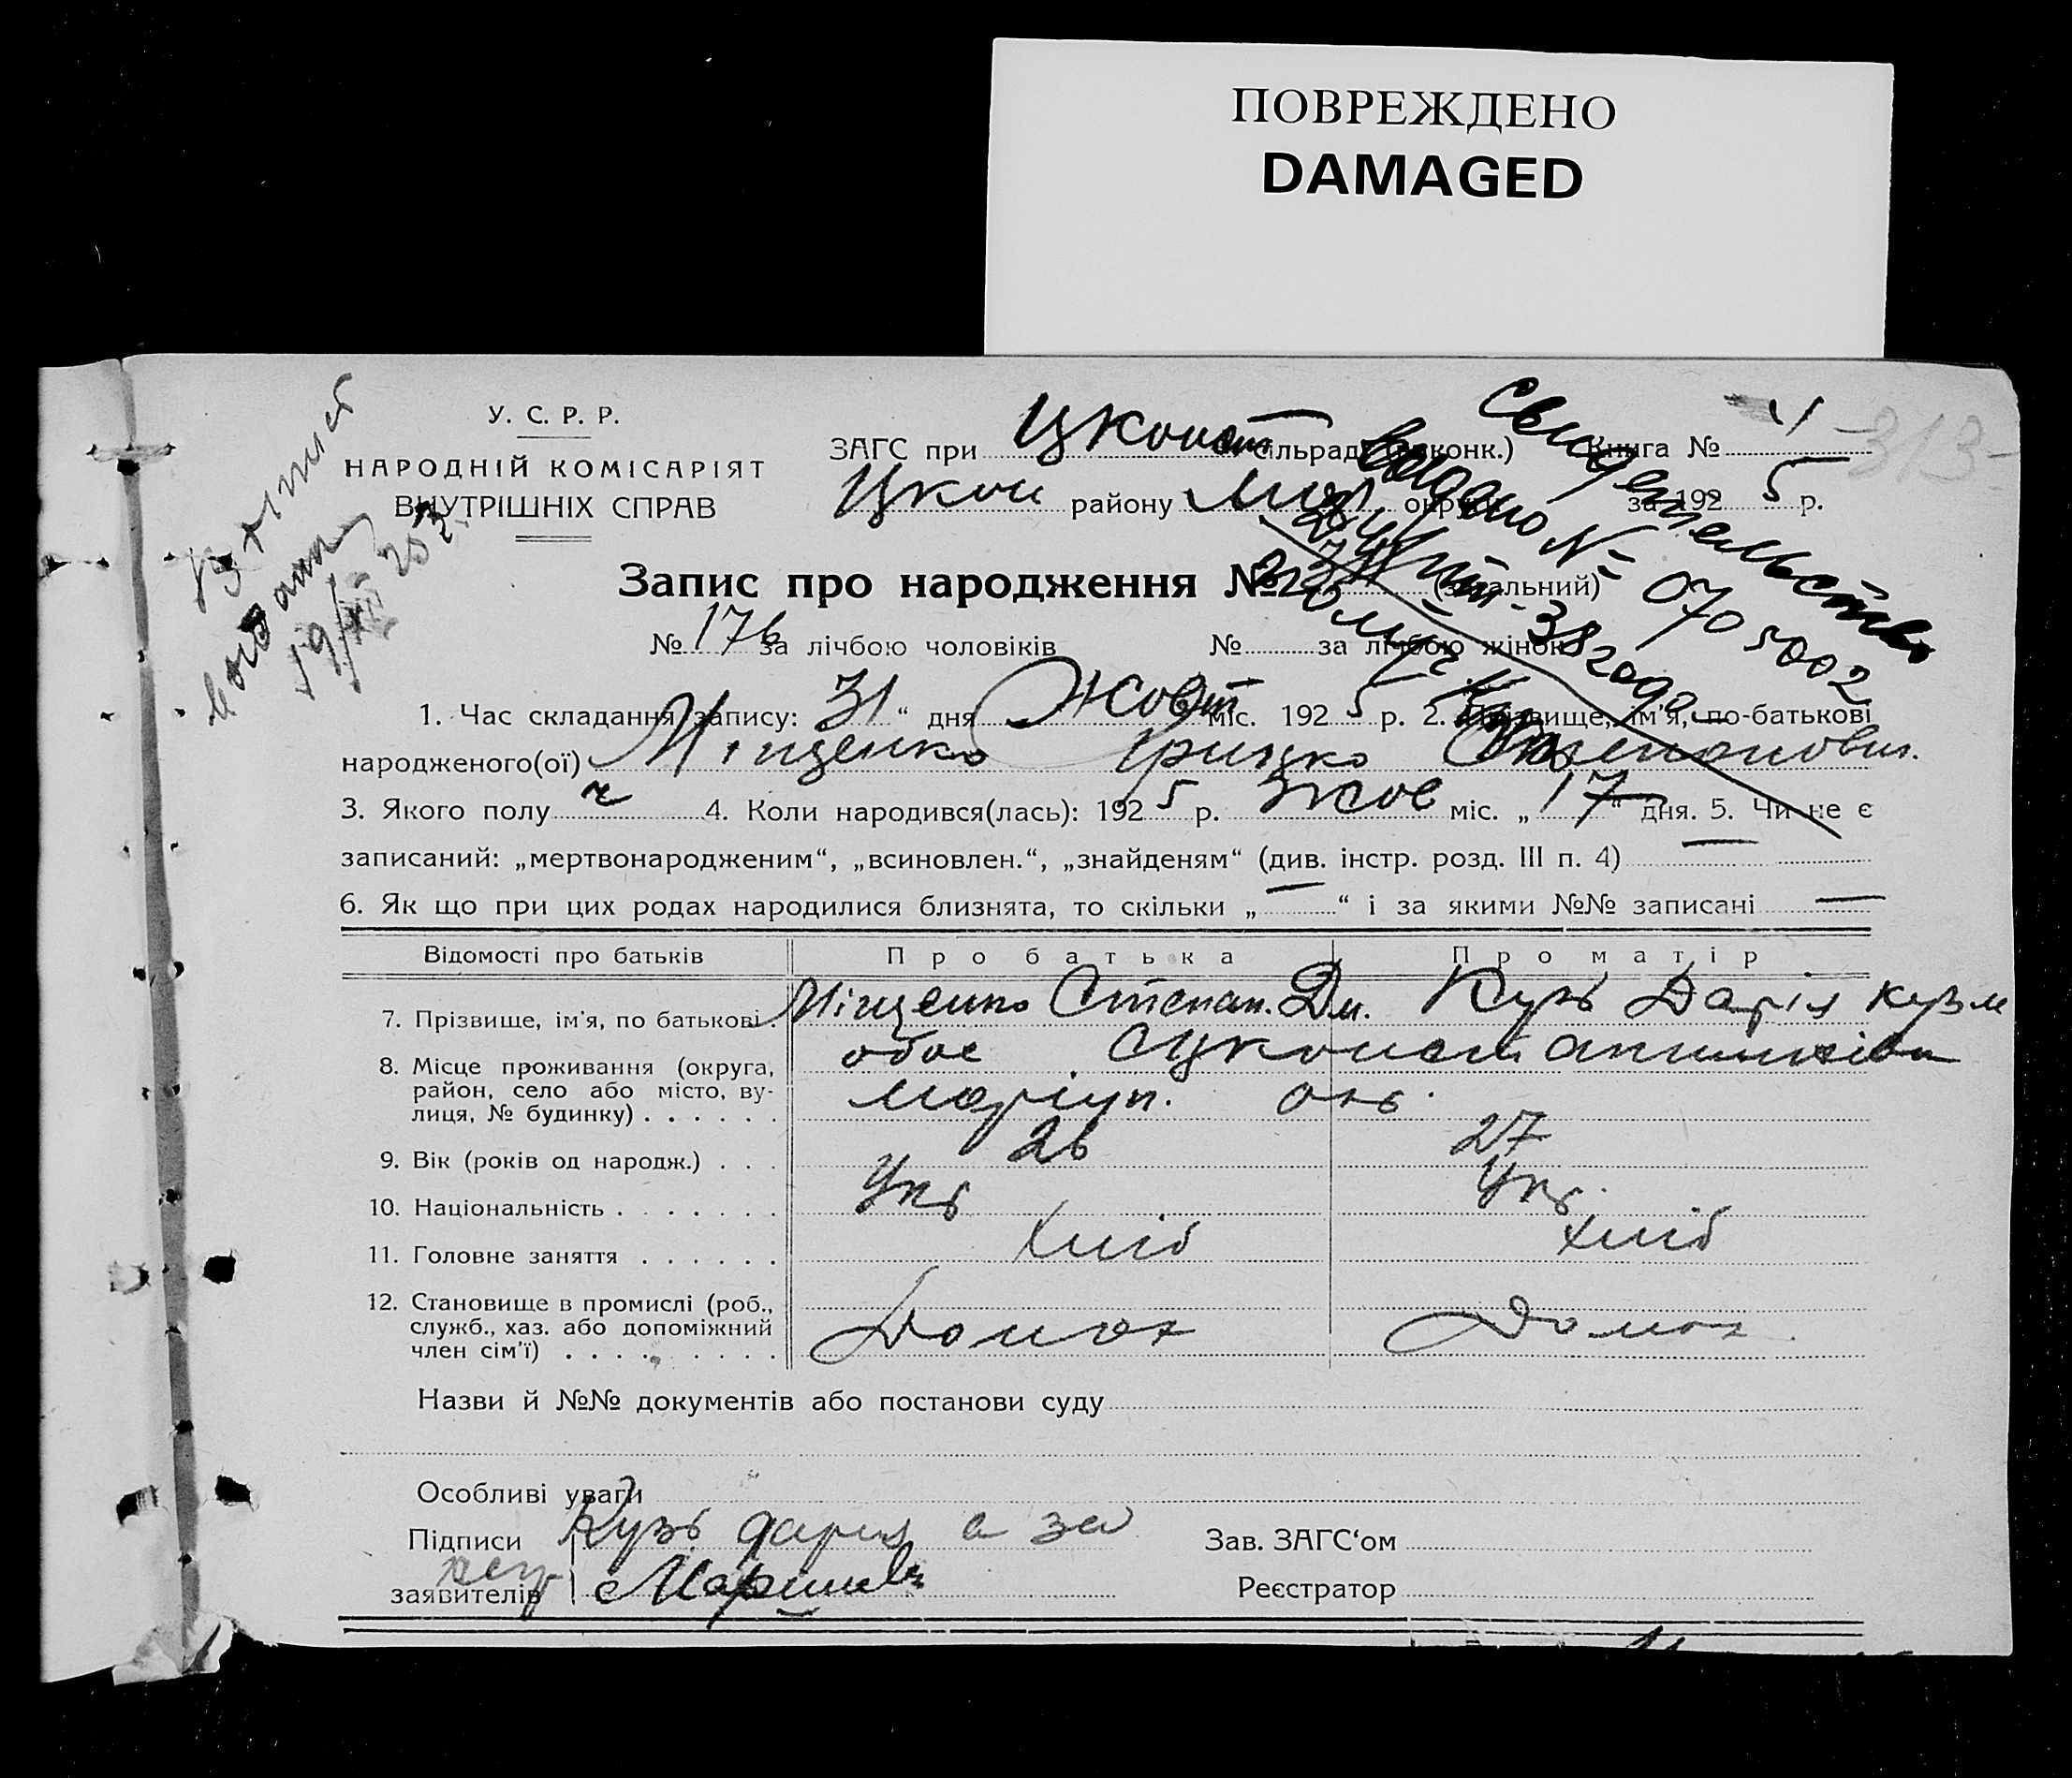 ПОВРЕЖДЕНО
DAMAGED
У. С. Р. Р.
НАРОДНІЙ КОМІСАРІЯТ
ВНУТРІШНІХ СПРАВ
ЗАГС при Цконст сільраді (виконк.) Книга №
Цкон району округи за 1925 р.
Свидетельство
выдано № 0705002
38 года
Запис про народження № (загальний)
№ 176 за лічбою чоловіків № за лічбою жінок
1. Час складання запису: 31 “ дня Жовт міс. 1925 р. 2. Прізвище, ім'я, по-батькові
народженого(ої) Міщенко Грицко Степанович.
3. Якого полу ч 4. Коли народився(лась): 1925 р. Жов міс. „ 17 “ дня. 5. Чи не є
записаний: „мертвонародженим“, „всиновлен.“, „знайденям“ (див. інстр. розд. III п. 4) —
6. Як що при цих родах народилися близнята, то скільки „ — “ і за якими №№ записані —
Відомості про батьків Про батька Про матір
7. Прізвище, ім'я, по батькові. Міщенко Степан. Дм. Кузь Дарія Кузм
8. Місце проживання (округа, район, село або місто, вулиця, № будинку) . . . . . . обоє
маріуп. окр.
9. Вік (років од народж.) . . . 26 27
10. Національність . . . . . . . Укр Укр.
11. Головне заняття . . . . . . Хліб Хліб
12. Становище в промислі (роб., служб., хаз. або допоміжний член сім'ї) . . . . . . . . . Домох Домох
Назви й №№ документів або постанови суду
Особливі уваги
Підписи Кузь дария а за Зав. ЗАГС‘ом
заявителів Реєстратор